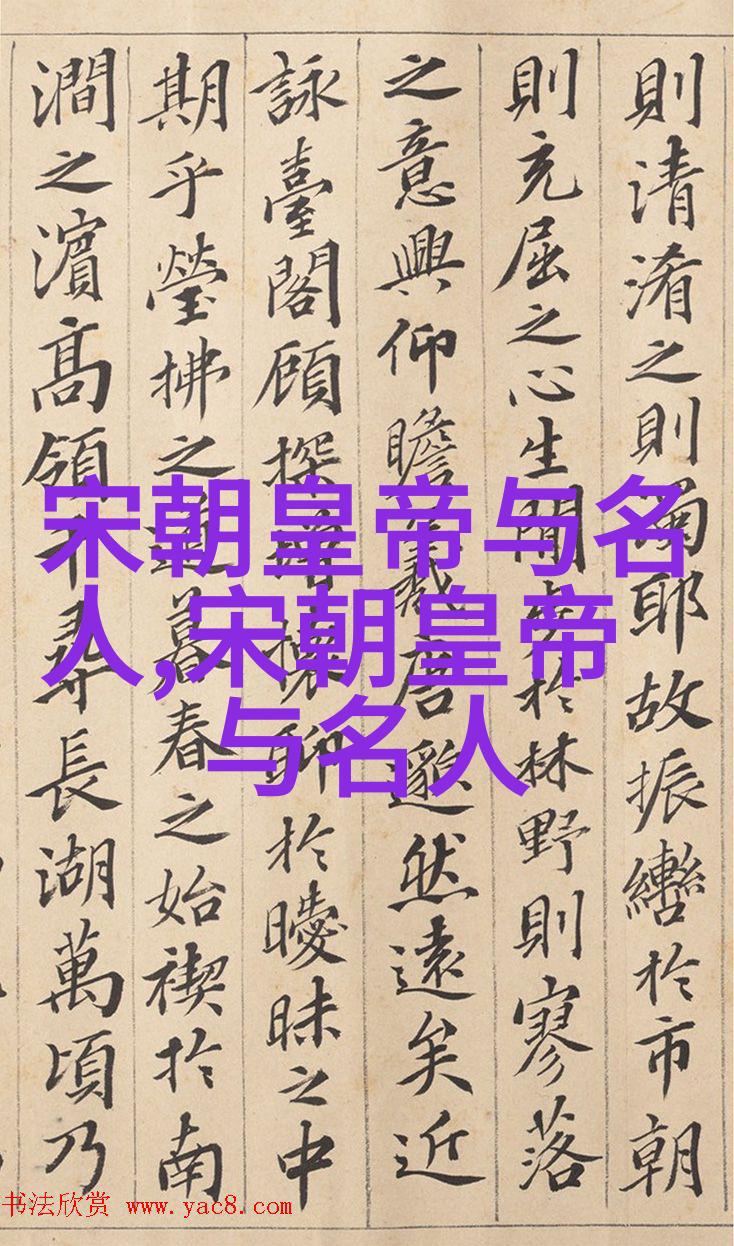 則清淆之則濁耶故振轡於市朝
則充屈之心生閒步於林野則寥落
之意興仰瞻羲唐邈然遠矣近
詠臺閣顧探增懷聊於曖昧之中
期乎瑩拂之道暮春之始禊於南
澗之濱高領千尋長湖萬頃乃
宋朝皇帝与名
人,宋朝皇帝
与名人
书法欣赏 www.yac8.com